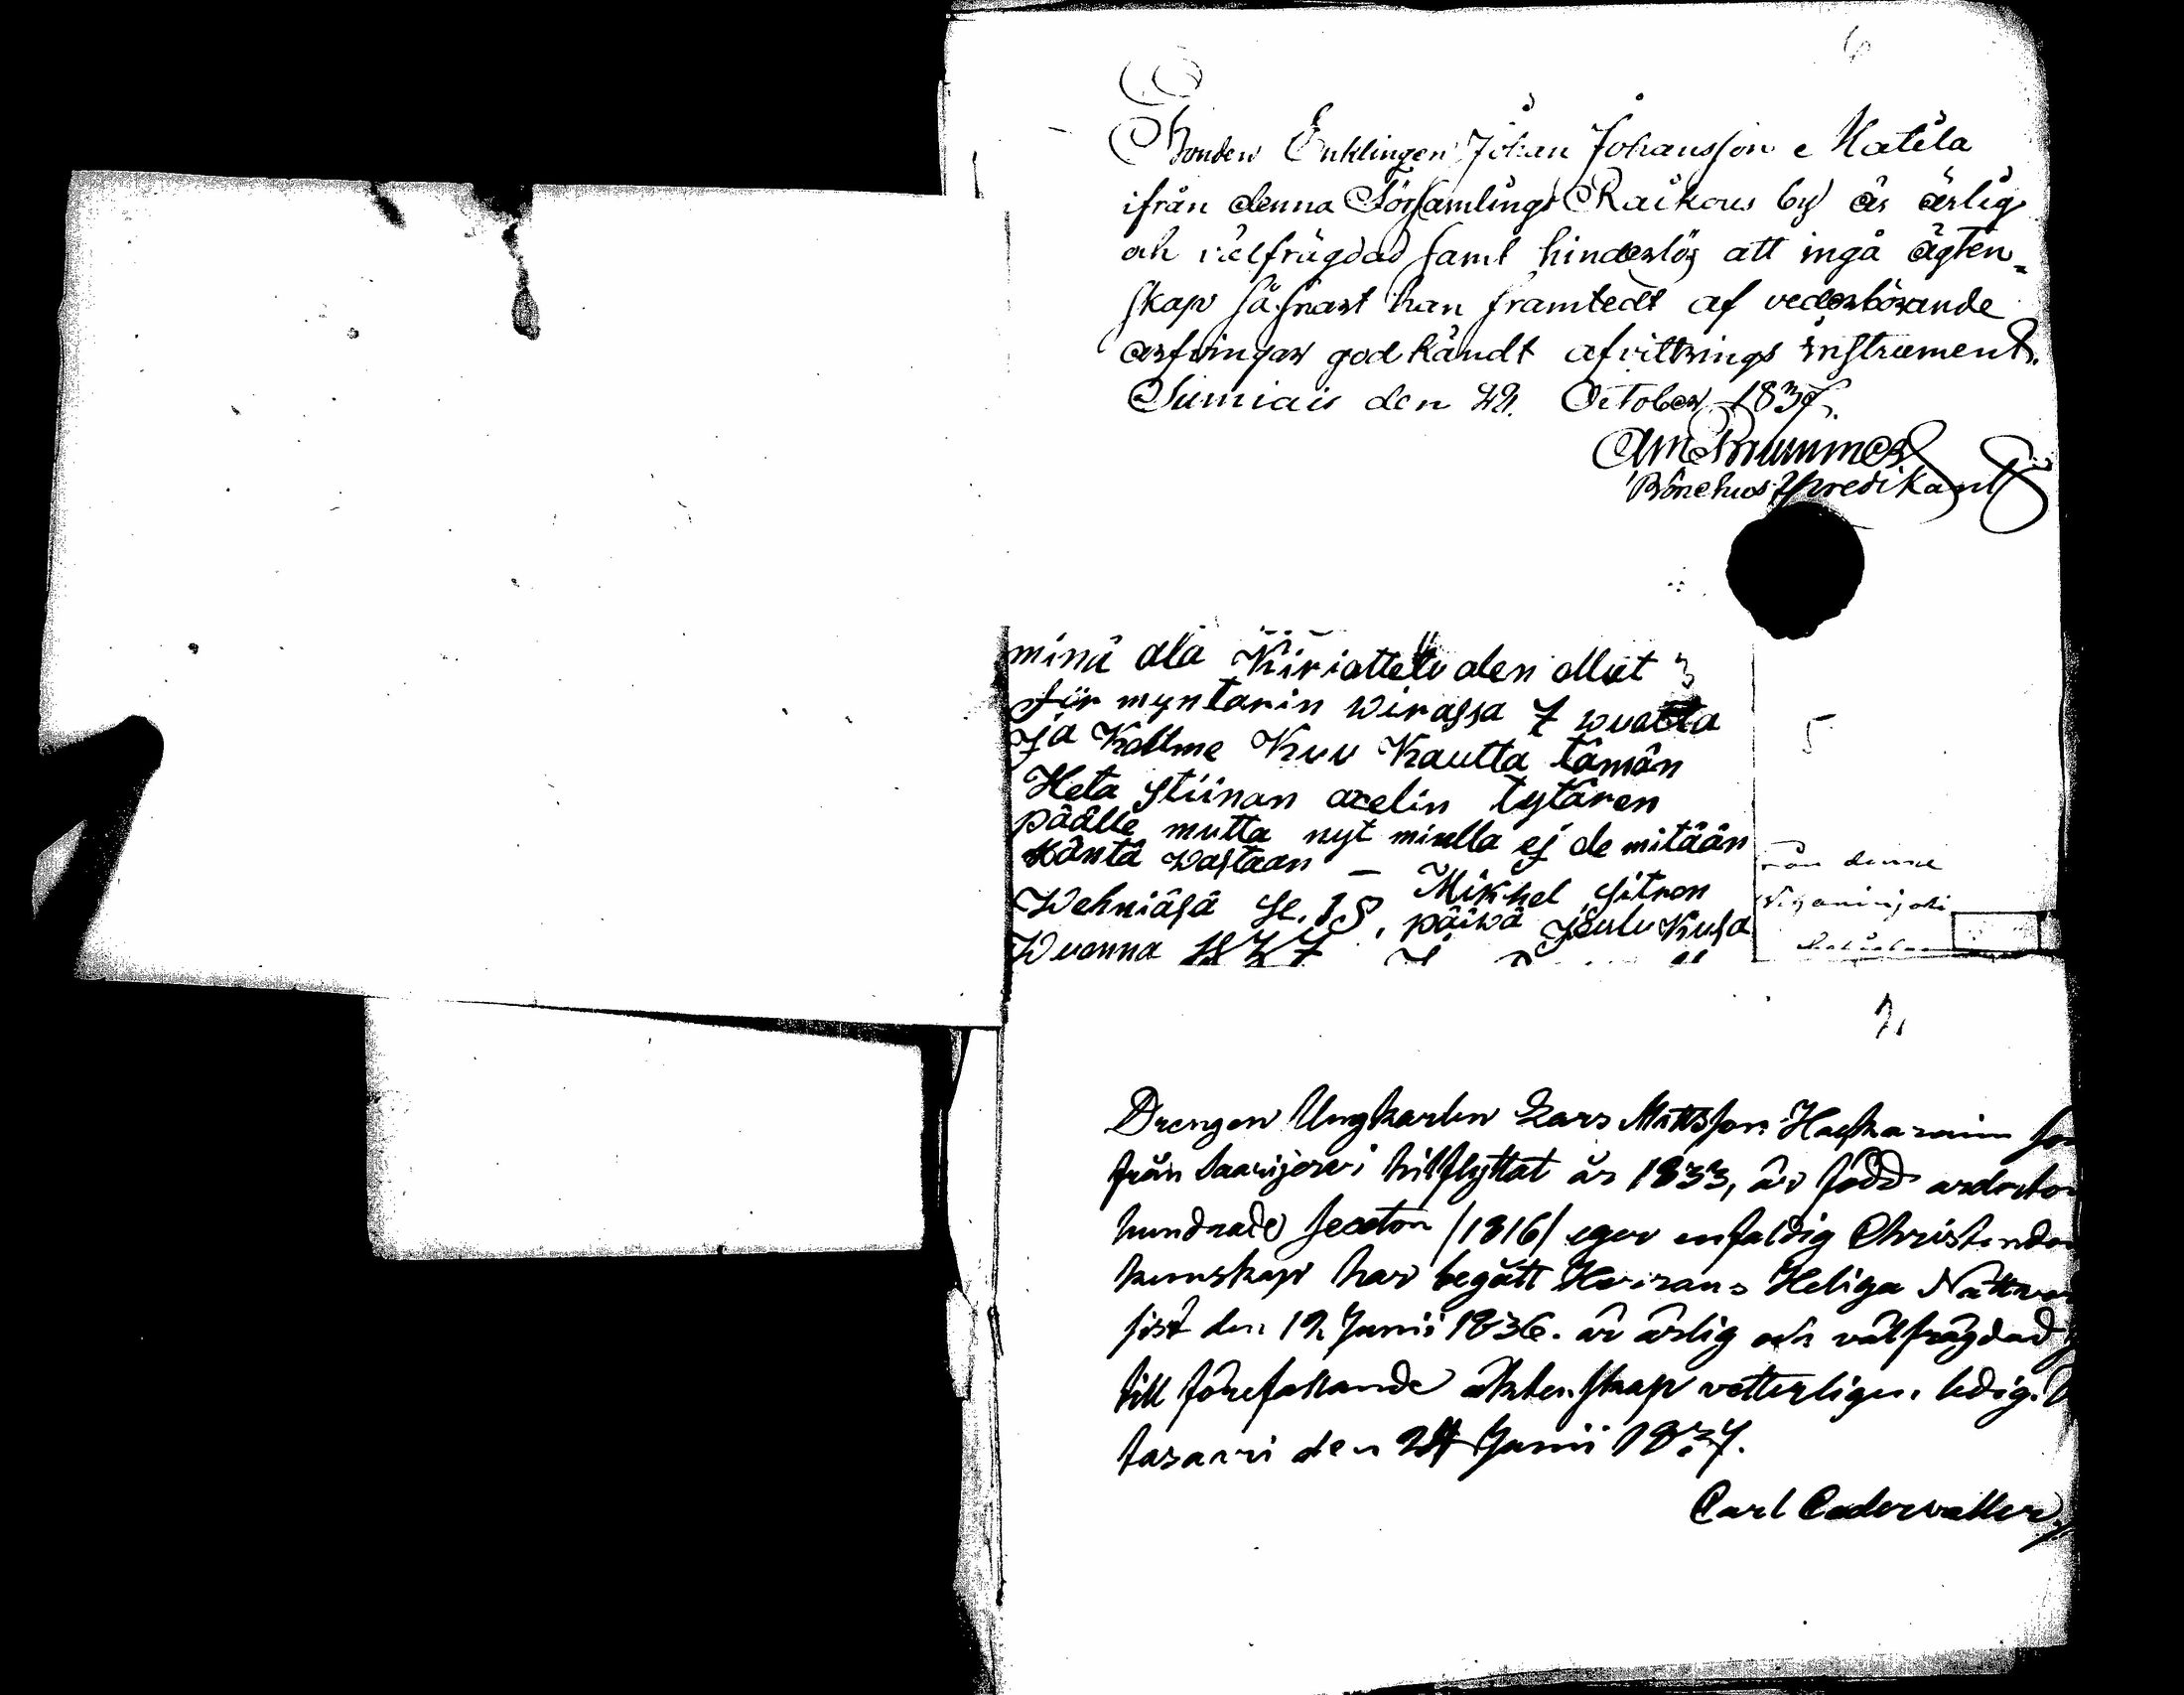 6
Bonden Enklingen Johan Johansson Matila
ifrån denna Församlings Raikous by är ärlig
och välfrägdad samt hinderlös att ingå ägten=
skap så snart han framtedt af vederbörande
arfvingar godkändt afvittrings instrument.
Sumiais den 22. October 1837.
Brummer
Bönehus Predikant
minä ala Kiriattetu olen ollut
för myntarin wirassa 7 wuotta
ja Kollme Kuu Kautta tämän
Heta stiinan axelin tytären
päälle mutta nyt minulla ej ole mitään
wastaan – Mikkel sitron
Wehniäsä se. 18. päiwä joulu Kusa
Wuonna 1837
5
från denne
7.
Drengen Ungkarlen Lars Mattsson
från Saarijerwi hitflyttat år 1833, är född
hundrade sexton /1816/ eger enfaldig
kunskap har begått Herrans Heliga
sist den 12 Junii 1836. är ärlig och välfrägdad
till förefallande äktenskap vetterligen ledig.
tasaari den 24 Junii 1837.
Carl Cedervaller